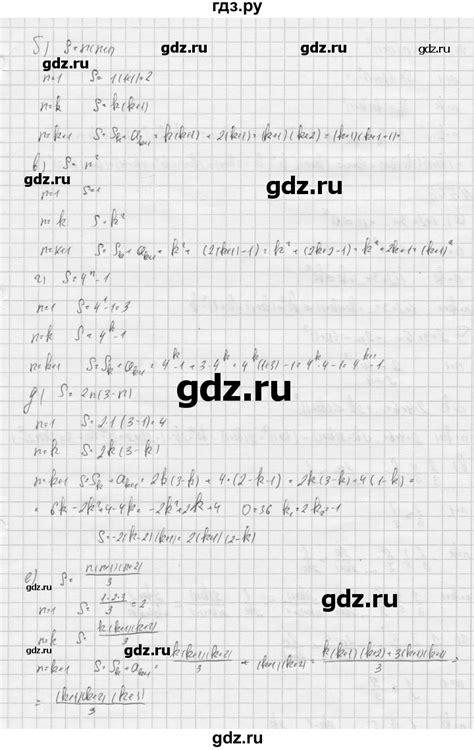 гдз.ру
б) S=n(n+1)
gdz.ru gdz.ru gdz.ru
n=1 S= 1(1+1)=2
n=k S= k(k+1)
n=k+1 S= S_k + a_{k+1} = k(k+1) + 2(k+1) = (k+1)(k+2) = (k+1)(k+1+1)
в) S= n²
gdz.ru gdz.ru
n=1 S=1
n=k S= k²
n=k+1 S= S_k + a_{k+1} = k² + (2(k+1)-1) = k² + (2k+2-1) = k²+2k+1=(k+1)²
г) S=4ⁿ-1
n=1 S=4¹-1=3
n=k S= 4ᵏ-1
n=k+1 S= S_k + a_{k+1} = 4ᵏ-1+3·4ᵏ = 4ᵏ(1+3)-1 = 4ᵏ·4-1 = 4ᵏ⁺¹-1
gdz.ru
д) S= 2n(3-n)
n=1 S= 2·1(3-1)=4
n=k S= 2k(3-k)
n=k+1 S= S_k + a_{k+1} = 2k(3-k) + 4·(2-k-1) = 2k(3-k)+4(1-k) =
= 6k-2k²+4-4k = -2k²+2k+4 D=36 k₁=2 k₂=-1
S=-2(k-2)(k+1) = 2(k+1)(2-k)
е) S= n(n+1)(n+2)/3
gdz.ru gdz.ru
n=1 S= 1·2·3/3 = 2
n=k S= k(k+1)(k+2)/3
n=k+1 S= S_k + a_{k+1} = k(k+1)(k+2)/3 + (k+1)(k+2) = k(k+1)(k+2)+3(k+1)(k+2)/3 =
gdz.ru
= (k+1)(k+2)(k+3)/3
gdz.ru gdz.ru
gdz.ru